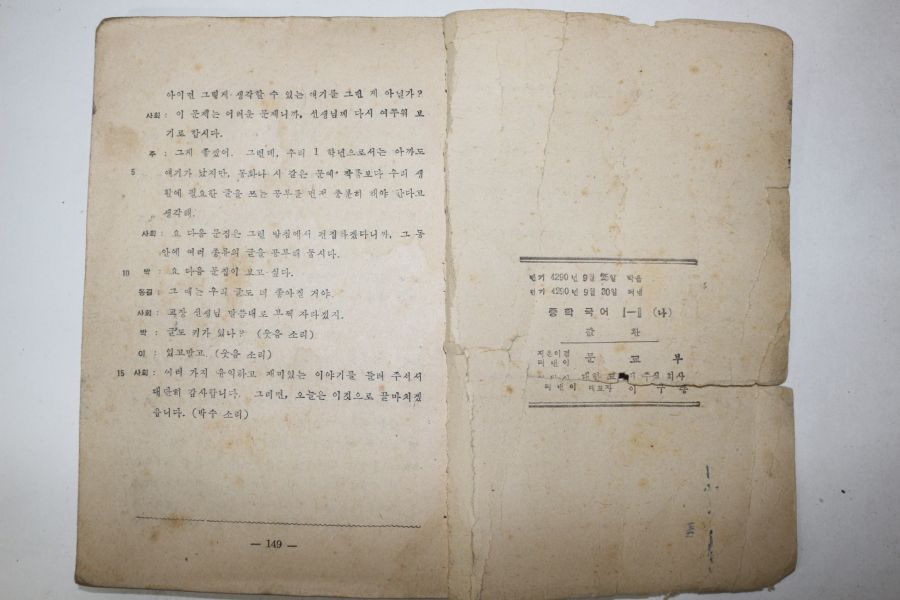 아이면 그렇게 생각할 수 있는 얘기를 그린 게 아닐가?
사회 : 이 문제는 어려운 문제니까, 선생님께 다시 여쭈워 보
기로 합시다.
주 : 그게 좋겠어. 그런데, 우리 1 학년으로서는 아까도
5 얘기가 났지만, 동화나 시 같은 문예 작품보다 우리 생
활에 필요한 글을 쓰는 공부를 먼저 충분히 해야 한다고
생각해.
사회 : 요 다음 문집은 그런 방침에서 편집하겠다니까, 그 동
안에 여러 종류의 글을 공부해 둡시다.
10 박 : 요 다음 문집이 보고 싶다.
동길 : 그 때는 우리 글도 더 좋아질 거야.
사회 : 교장 선생님 말씀대로 부쩍 자라겠지.
박 : 글도 키가 있나? (웃음 소리)
이 : 있고말고. (웃음 소리)
15 사회 : 여러 가지 유익하고 재미있는 이야기를 들려 주셔서
대단히 감사합니다. 그러면, 오늘은 이것으로 끝마치겠
읍니다. (박수 소리)
— 149 —
단기 4290년 9월 25일 박음
단기 4290년 9월 30일 펴냄
중학 국어 Ⅰ—Ⅱ (나)
값 환
지은이겸
펴낸이 문 교 부
대한 교 주식 회사
펴낸이 대표자 이